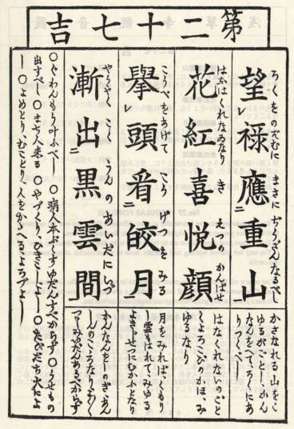 第二十七吉
ろくをのぞむに まさにぢうざんなるべし
望禄應重山
レ 二 一
かさなれる山をこ
ゆるがごとし、かん
なんをへてろくにあ
りつくべし
はなはくれなゐなり きえつのかんばせ
花紅喜悦顔
はなくれなゐのごと
くよろこびのかほ、み
ゆるなり
こうべをあげて こうげつをみる
擧頭看皎月
レ 二 一
月をみればくもり
し雲もはれてみゆる
よきじせつにむかふとなり
やうやく こくうんのあいだにいづ
漸出黒雲間
二 一
かんなんをしのぎ
○ぐわんもう叶ふべし ○病人本ぶくすゆだんすべからず ○うせもの
出すべし ○まち人来る ○やづくり、ひきこしよし ○たびだち大によ
し ○よめとり、むことり、人をかゝへるよろづよし